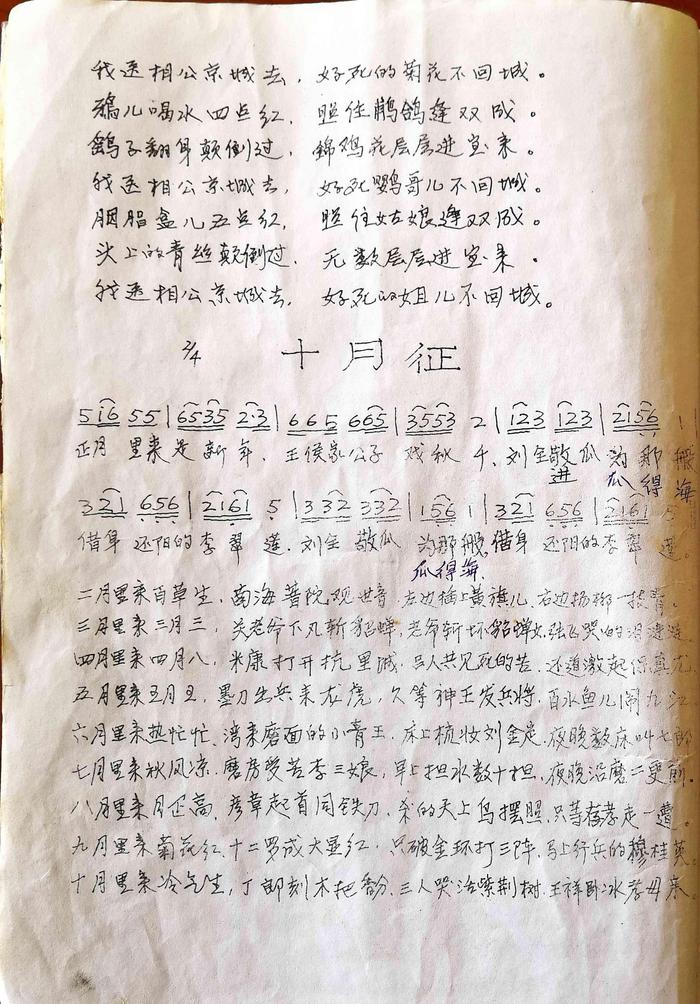 我送相公京城去，好死的菊花不回城。
鵝儿喝水四点红，照住鹡鸰逢双成。
鹞子翻身颠倒过，锦鸡花层层进宝来。
我送相公京城去，好死鹦哥儿不回城。
胭脂盒儿五点红，照住姑娘逢双成。
头上的青丝颠倒过，无数层层进宝来。
我送相公京城去，好死的姐儿不回城。
2/4 十月征
5 i6 55 | 6535 2·3 | 6 6 5 665 | 3553 2 | 123 123 | 2156 1 |
正月 里来是 新 年，王侯家公子 戏秋 千，刘全敬瓜 为 那 般
进 瓜 得 海
3 21 656 | 2161 5 | 3 32 332 | 156 1 | 321 656 | 2161 5
借身 还阳的 李 翠 莲，刘全 敬瓜 为那般，借身 还阳的 李 翠 莲。
瓜得海
二月里来百草生，南海菩院观世音，左边插上黄旗儿，右边杨柳一枝青。
三月里来三月三，关老爷下凡斩貂蝉，老爷斩坏貂蝉女，张飞哭的泪涟涟
四月里来四月八，米康打开抗里城，吕人共见死的苦，还道激起保
五月里来五月五，墨刀出兵来龙虎，久等神王发兵将，百水鱼儿闹九江
六月里来热忙忙，湾来磨面的小青王，床上梳妆刘金定，夜晚数床叫七郎
七月里来秋风凉，磨房受苦李三娘，早上担水数十担，夜晚沿磨二更前。
八月里来月正高，彦章起首同铁刀，杀的天上鸟摆照，只等存孝走一遭。
九月里来菊花红，十二岁成大显红，只破金环打三阵，马上行兵的穆桂英。
十月里来冷气生，丁郎刻木把香，三人哭活紫荆树，王祥卧冰孝母亲。